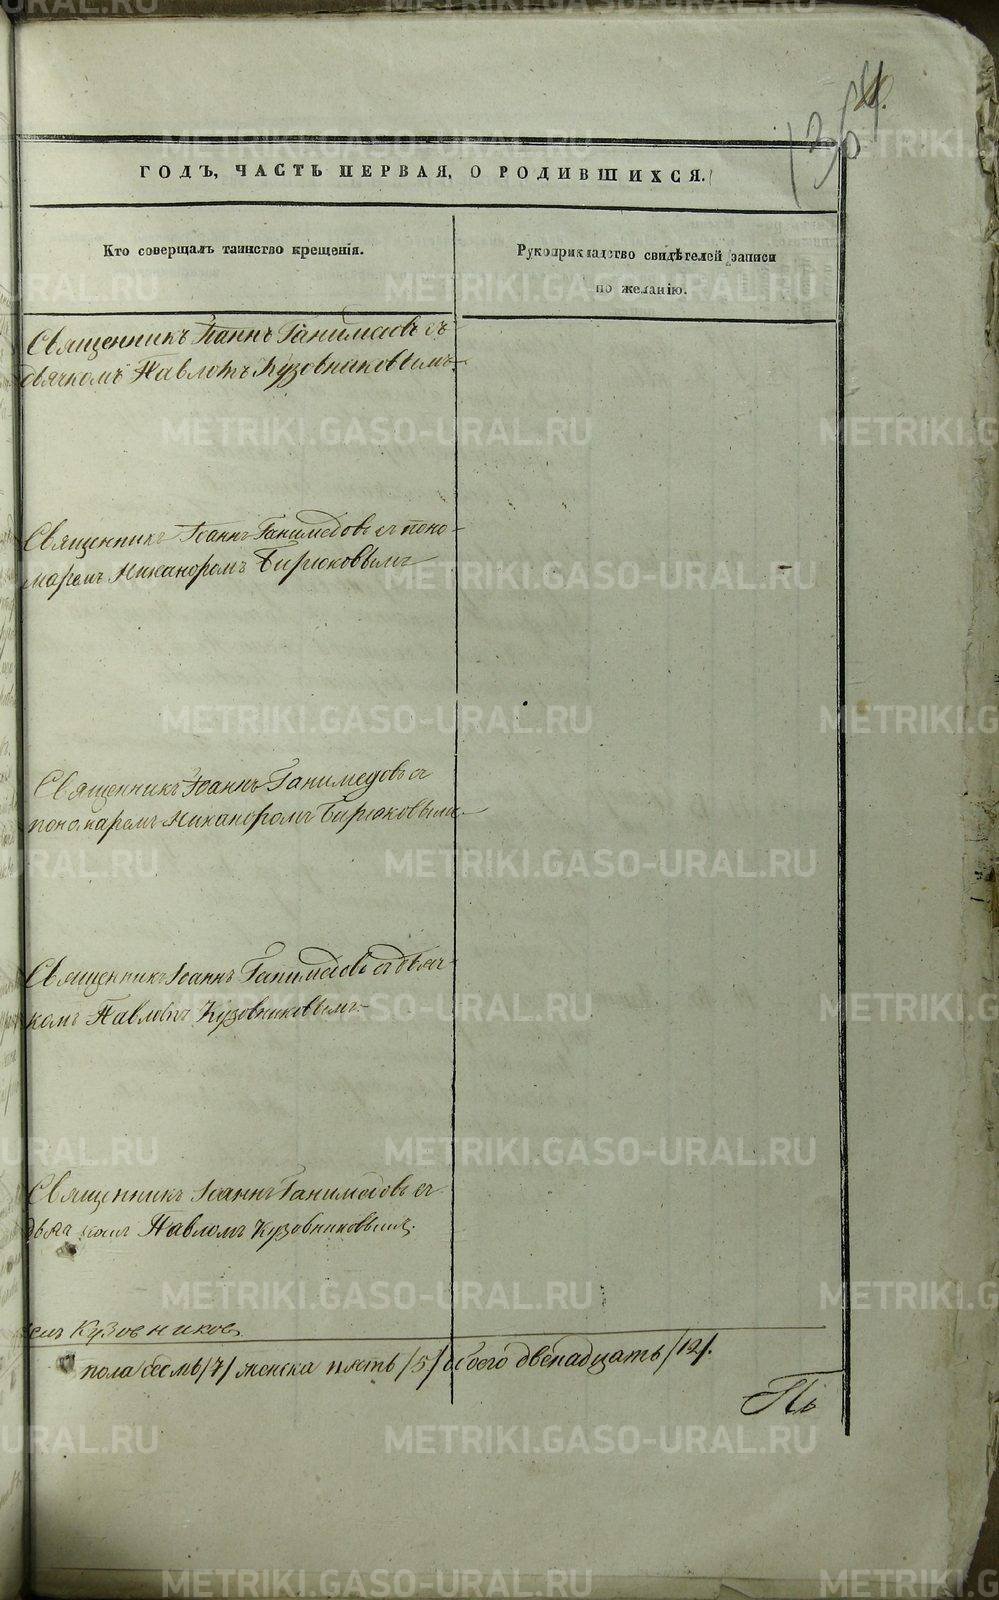 ГОДЪ, ЧАСТЬ ПЕРВАЯ, О РОДИВШИХСЯ.
Кто совершалъ таинство крещенія.
Рукоприкладство свидѣтелей записи
по желанію.
Священникъ Іоаннъ Ганимедовъ съ
дьячкомъ Павломъ Кузовниковымъ.
Священникъ Іоаннъ Ганимедовъ съ поно-
маремъ Никаноромъ Бирюковымъ
Священникъ Іоаннъ Ганимедовъ съ
пономаремъ Никаноромъ Бирюковымъ.
Священникъ Іоаннъ Ганимедовъ съ дьяч-
комъ Павломъ Кузовниковымъ.
Священникъ Іоаннъ Ганимедовъ съ
дьячкомъ Павломъ Кузовниковымъ.
Кузовниковъ
пола семь /7/ женска пять /5/ обоего двенадцать /12/.
METRIKI.GASO-URAL.RU